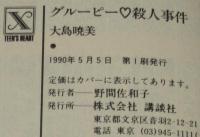 X
TEEN'S HEART
グルーピー♡殺人事件
大島暁美
1990年5月5日 第1刷発行
定価はカバーに表示してあります。
発行者――野間佐和子
発行所――株式会社 講談社
東京都文京区音羽2-12-21
電話 東京 (03)945-1111(